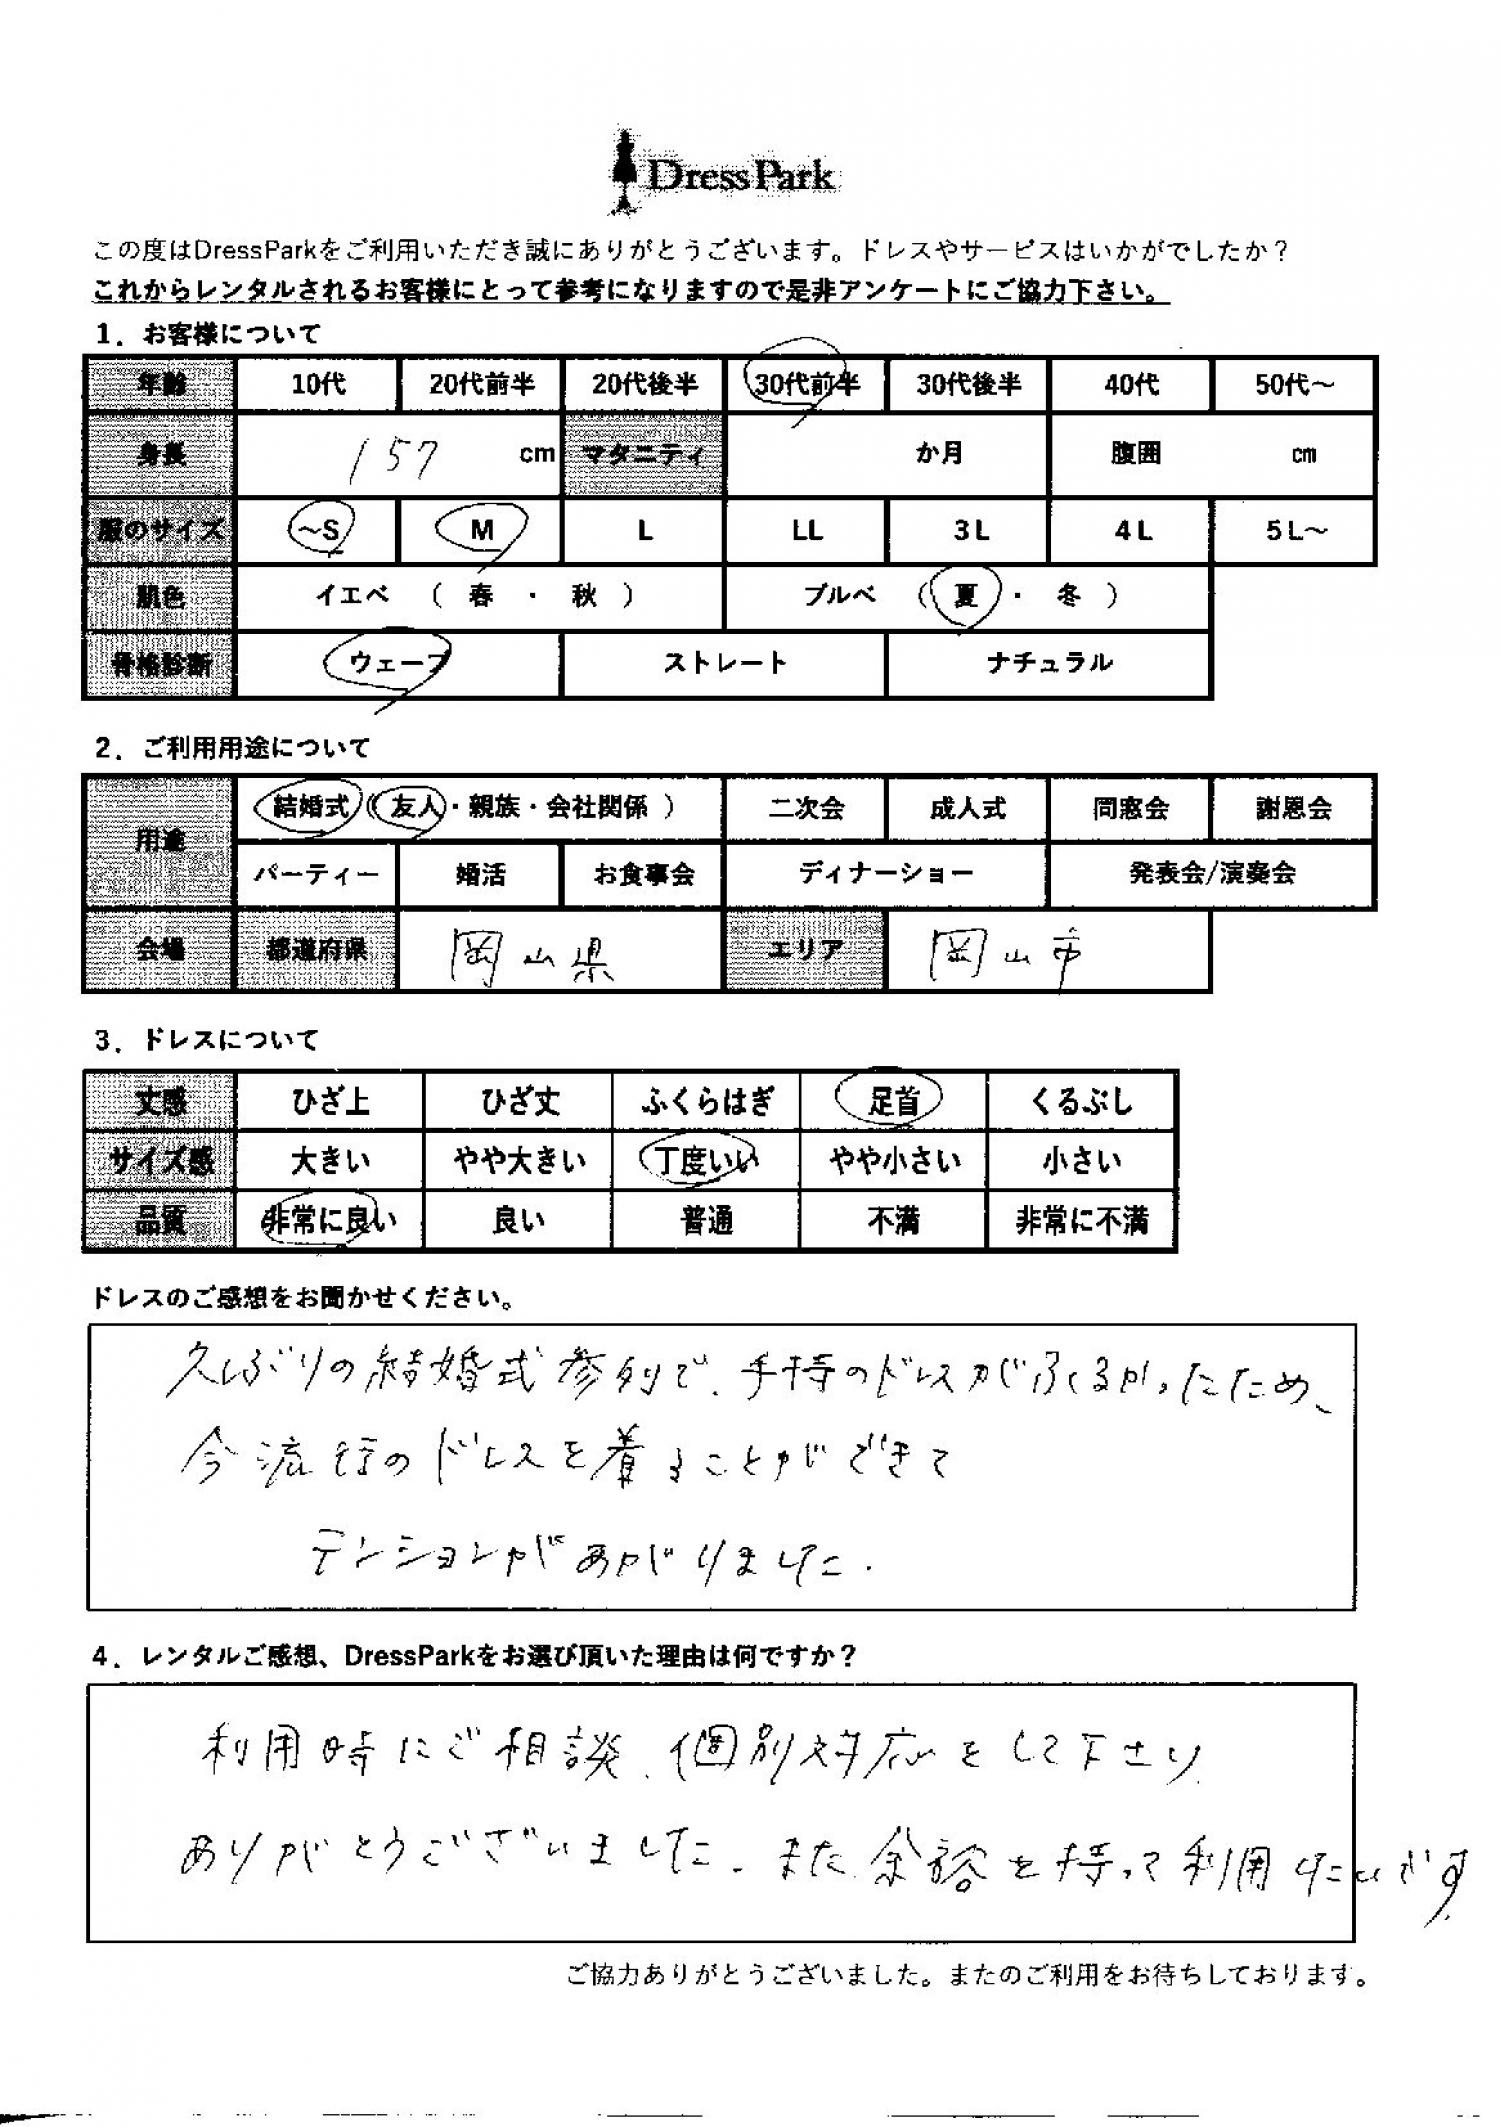 DressPark
この度はDressParkをご利用いただき誠にありがとうございます。ドレスやサービスはいかがでしたか？
これからレンタルされるお客様にとって参考になりますので是非アンケートにご協力下さい。
1．お客様について
年齢 10代 20代前半 20代後半 30代前半 30代後半 40代 50代～
身長 157 cm マタニティ か月 腹囲 cm
服のサイズ ～S M L LL 3L 4L 5L～
肌色 イエベ （ 春 ・ 秋 ） ブルベ （ 夏 ・ 冬 ）
骨格診断 ウェーブ ストレート ナチュラル
2．ご利用用途について
用途 結婚式（友人・親族・会社関係） 二次会 成人式 同窓会 謝恩会
パーティー 婚活 お食事会 ディナーショー 発表会/演奏会
会場 都道府県 岡山県 エリア 岡山市
3．ドレスについて
丈感 ひざ上 ひざ丈 ふくらはぎ 足首 くるぶし
サイズ感 大きい やや大きい 丁度いい やや小さい 小さい
品質 非常に良い 良い 普通 不満 非常に不満
ドレスのご感想をお聞かせください。
久しぶりの結婚式参列で、手持のドレスがふるかったため、
今流行のドレスを着ることができて
テンションがあがりました．
4．レンタルご感想、DressParkをお選び頂いた理由は何ですか？
利用時にご相談、個別対応をして下さり
ありがとうございました．また余裕を持って利用したいです．
ご協力ありがとうございました。またのご利用をお待ちしております。